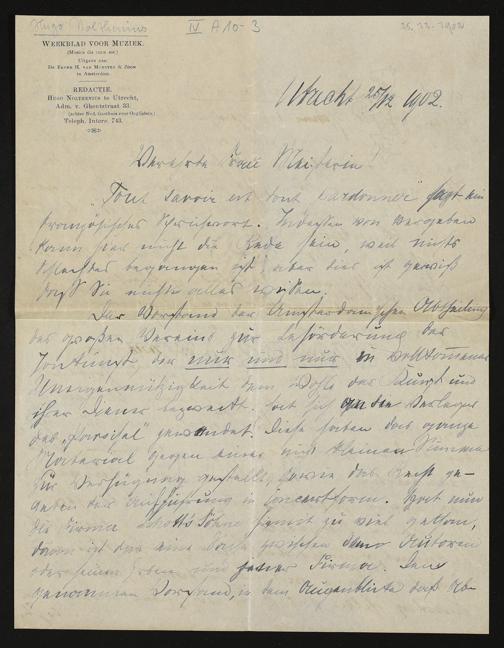 Hugo Nolthenius
IV A 10-3
25.12.1902
WEEKBLAD VOOR MUZIEK.
Uitgave van:
DE ERVEN H. VAN MUNSTER & ZOON
te Amsterdam.
REDACTIE.
HUGO NOLTHENIUS te Utrecht,
Adm. v. Ghentstraat 33.
Teleph. Interc. 743.
Utrecht 25/12 1902.
Verehrte Frau Meisterin!
"Tout savoir est tout pardonner" sagt ein
französisches Sprichwort. Indessen von Vergeben
kann hier nicht die Rede sein, weil nichts
Schlechtes begangen ist, aber dies ist gewiß
daß Sie nicht alles wissen.
Der Vorstand der Amsterdamschen Abtheilung
des großen Vereins zur Beförderung der
Tonkunst der nur und nur in vollkommener
Uneigennützigkeit dem Wohle der Kunst und
ihrer Diener bezweckt, hat sich an den Verleger
des "Parsifal" gewendet. Diese haben das ganze
Material gegen eine kleine Summe
zur Verfügung gestellt, sowie das Recht ge-
geben der Aufführung in Concertform. Hat nun
die Firma Schott's Söhne hiermit zu viel gethan,
dann ist das eine Sache zwischen dem Autoren
oder seinen Erben und jener Firma. Den
genannten Vorstand, in dem Augenblicke daß Ab-